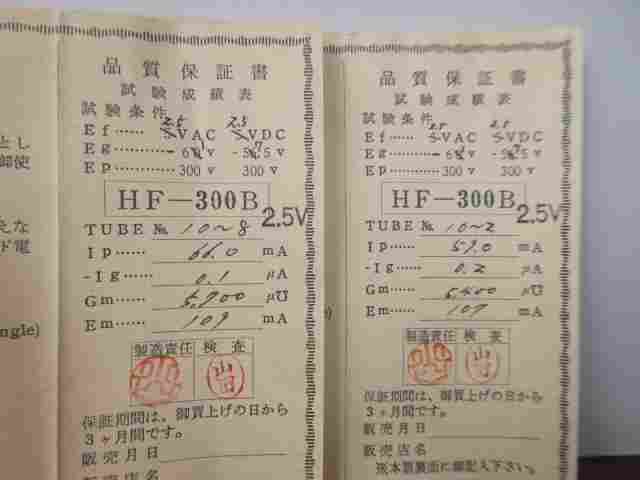 品質保証書
試験成績表
試験条件
Ef…… 2.5 VAC 2.5 VDC
Eg…… -61 V -57 V
Ep…… 300 V 300 V
HF-300B
2.5V
TUBE № 10~8
Ip…… 66.0 mA
-Ig…… 0.1 μA
Gm…… 5,900 μ℧
Em…… 109 mA
製造責任 検査
山口
保証期間は、御買上げの日から
3ヶ月間です。
販売月日
販売店名
品質保証書
試験成績表
試験条件
Ef…… 2.5 VAC 2.5 VDC
Eg…… -61 V -57 V
Ep…… 300 V 300 V
HF-300B
2.5V
TUBE № 10~2
Ip…… 59.0 mA
-Ig…… 0.2 μA
Gm…… 5,400 μ℧
Em…… 107 mA
製造責任 検査
山口
保証期間は、御買上げの日から
3ヶ月間です。
販売月日
販売店名
とし
御使
えな
ド電
ngle)